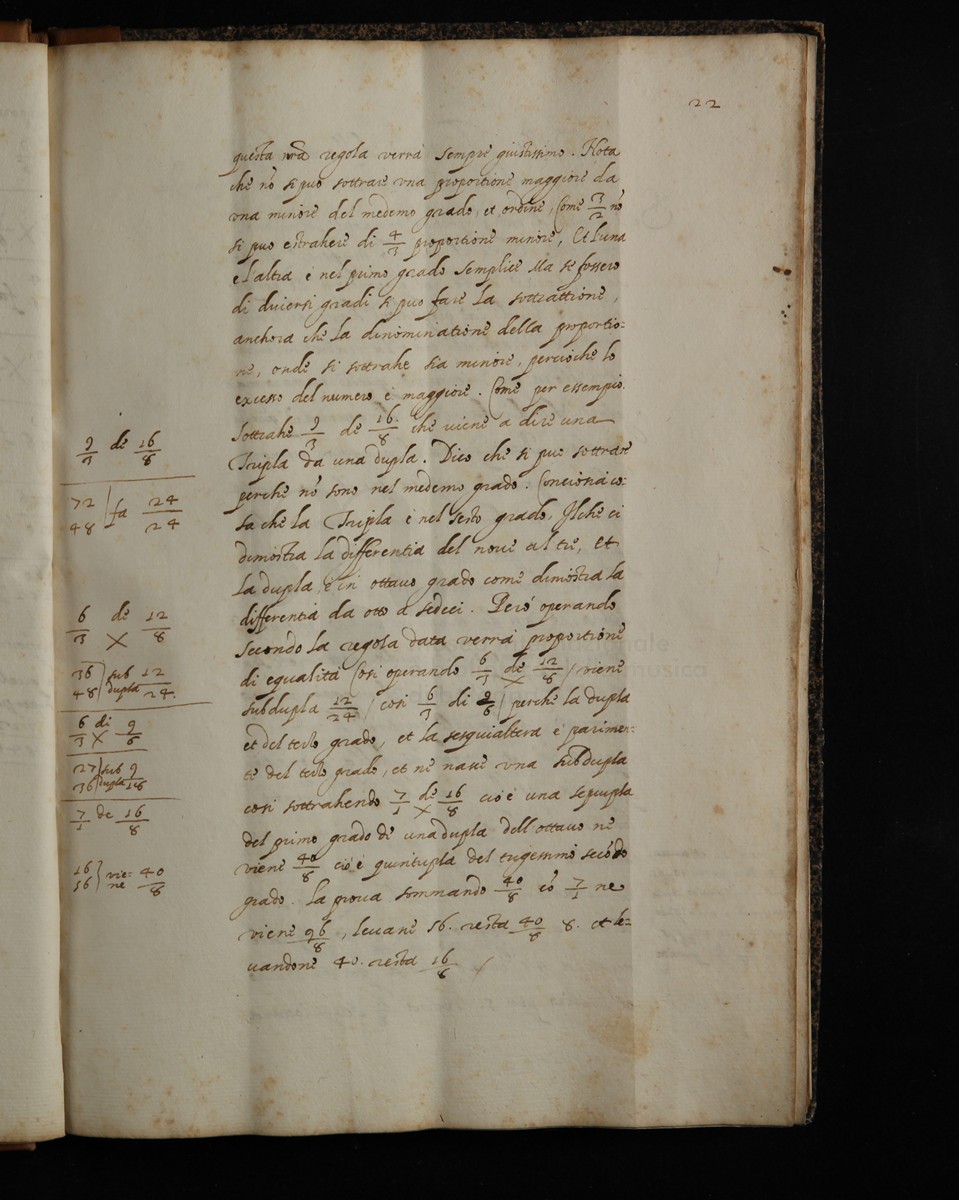 22
questa nrã regola verrà sempre giustissimo. Nota
che nõ si puo sottrare una proportione maggiore da
una minore del medemo grado, et ordine, Come 3/2 nõ
si puo estrahere di 4/3 proportione minore, Et l'una
e l'altra è nel primo grado semplice Ma se fossero
di diversi gradi si puo fare la sottrattione,
anchora che la dinominatione della proportio=
ne, onde si sottrahe sia minore, percioche lo
excesso del numero è maggiore. Come per essempio.
Sottrahe 9/3 de 16/8 che viene a dire una
Tripla da una dupla. Dico che si puo sottrare
perche nõ sono nel medemo grado. Conciosia co=
sa che la Tripla è nel sesto grado, Ilche ci
dimostra la differentia del nove al tre, Et
la dupla, è in ottavo grado come dimostra la
differentia da otto a sedeci. Però operando
secondo la regola data verrà proportione
di equalità Cosi operando 6/3 de 12/8 / viene
subdupla 12/24 / cosi 6/3 di 9/6 / perche la dupla
et del terzo grado, et la sesquialtera è parimen=
te del terzo grado, et ne nasce una subdupla
cosi sottrahendo 7/1 de 16/8 cioè una settupla
del primo grado de una dupla dell'ottavo ne
viene 40/8 cioè quintupla del trigessimo secõdo
grado. La prova sommando 40/8 cõ 7/1 ne
viene 96/8, levane 56. resta 40/8 8. et le=
vandone 40. resta 16/8
9/3 de 16/8
72/48 fa 24/24
6/3 de 12/8
36/48 sub dupla 12/24
6/3 di 9/6
27/36 sub dupla 9/18
7/1 de 16/8
16/56 vie=ne 40/8